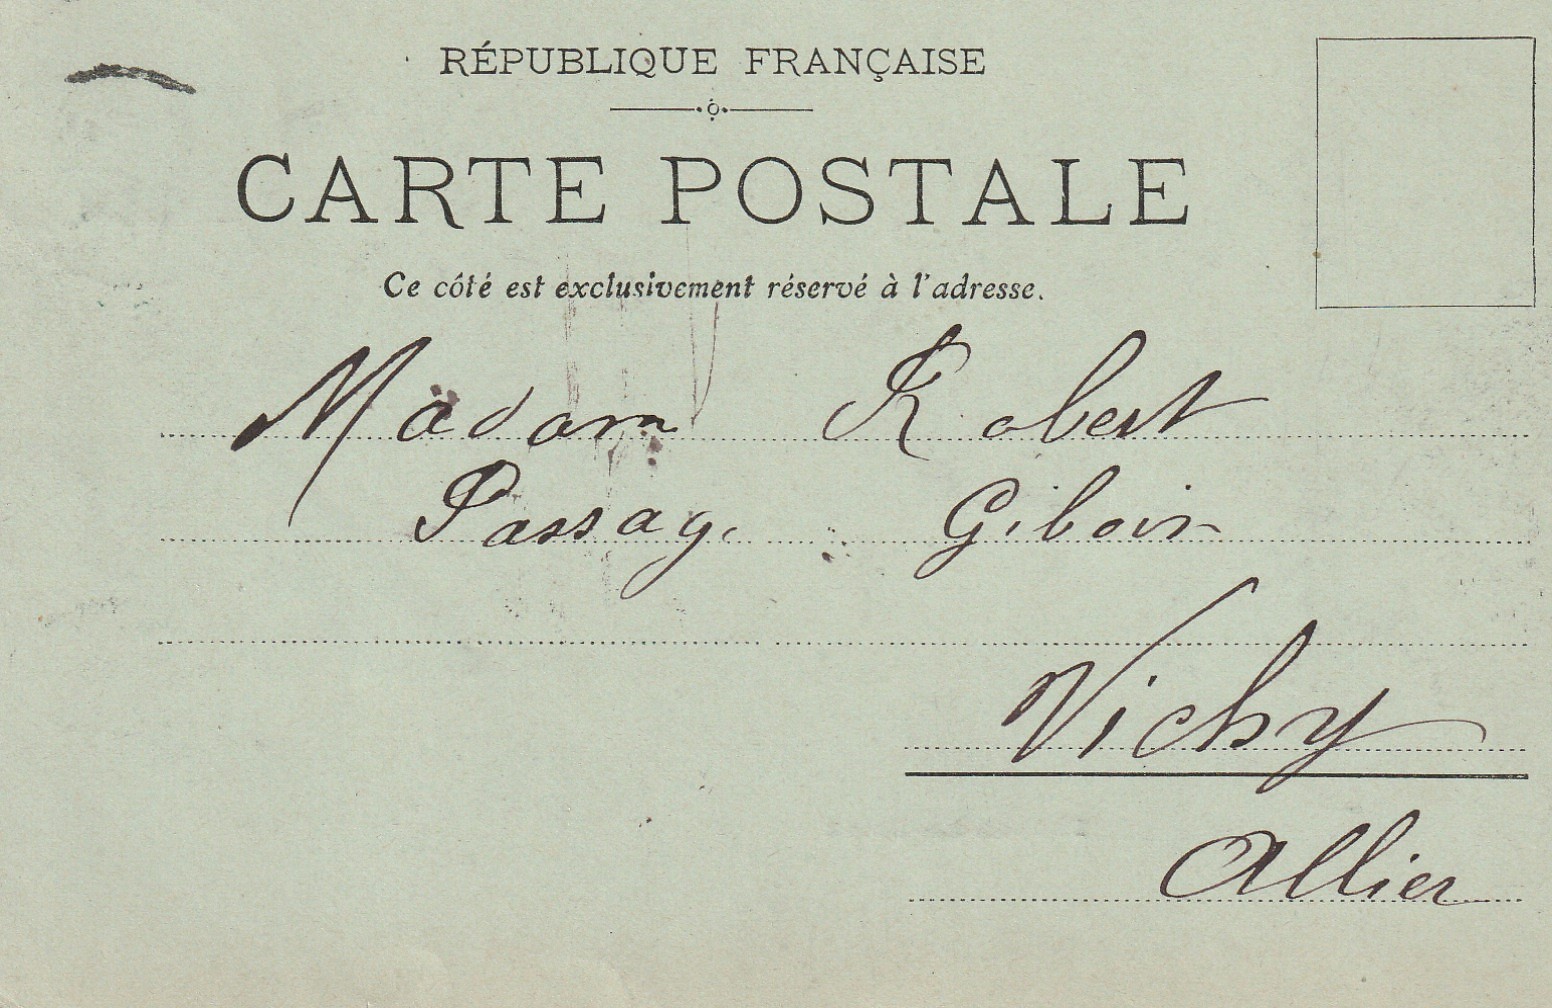 RÉPUBLIQUE FRANÇAISE
CARTE POSTALE
Ce côté est exclusivement réservé à l'adresse.
Madam Robert
Passage Giboin
Vichy
Allier